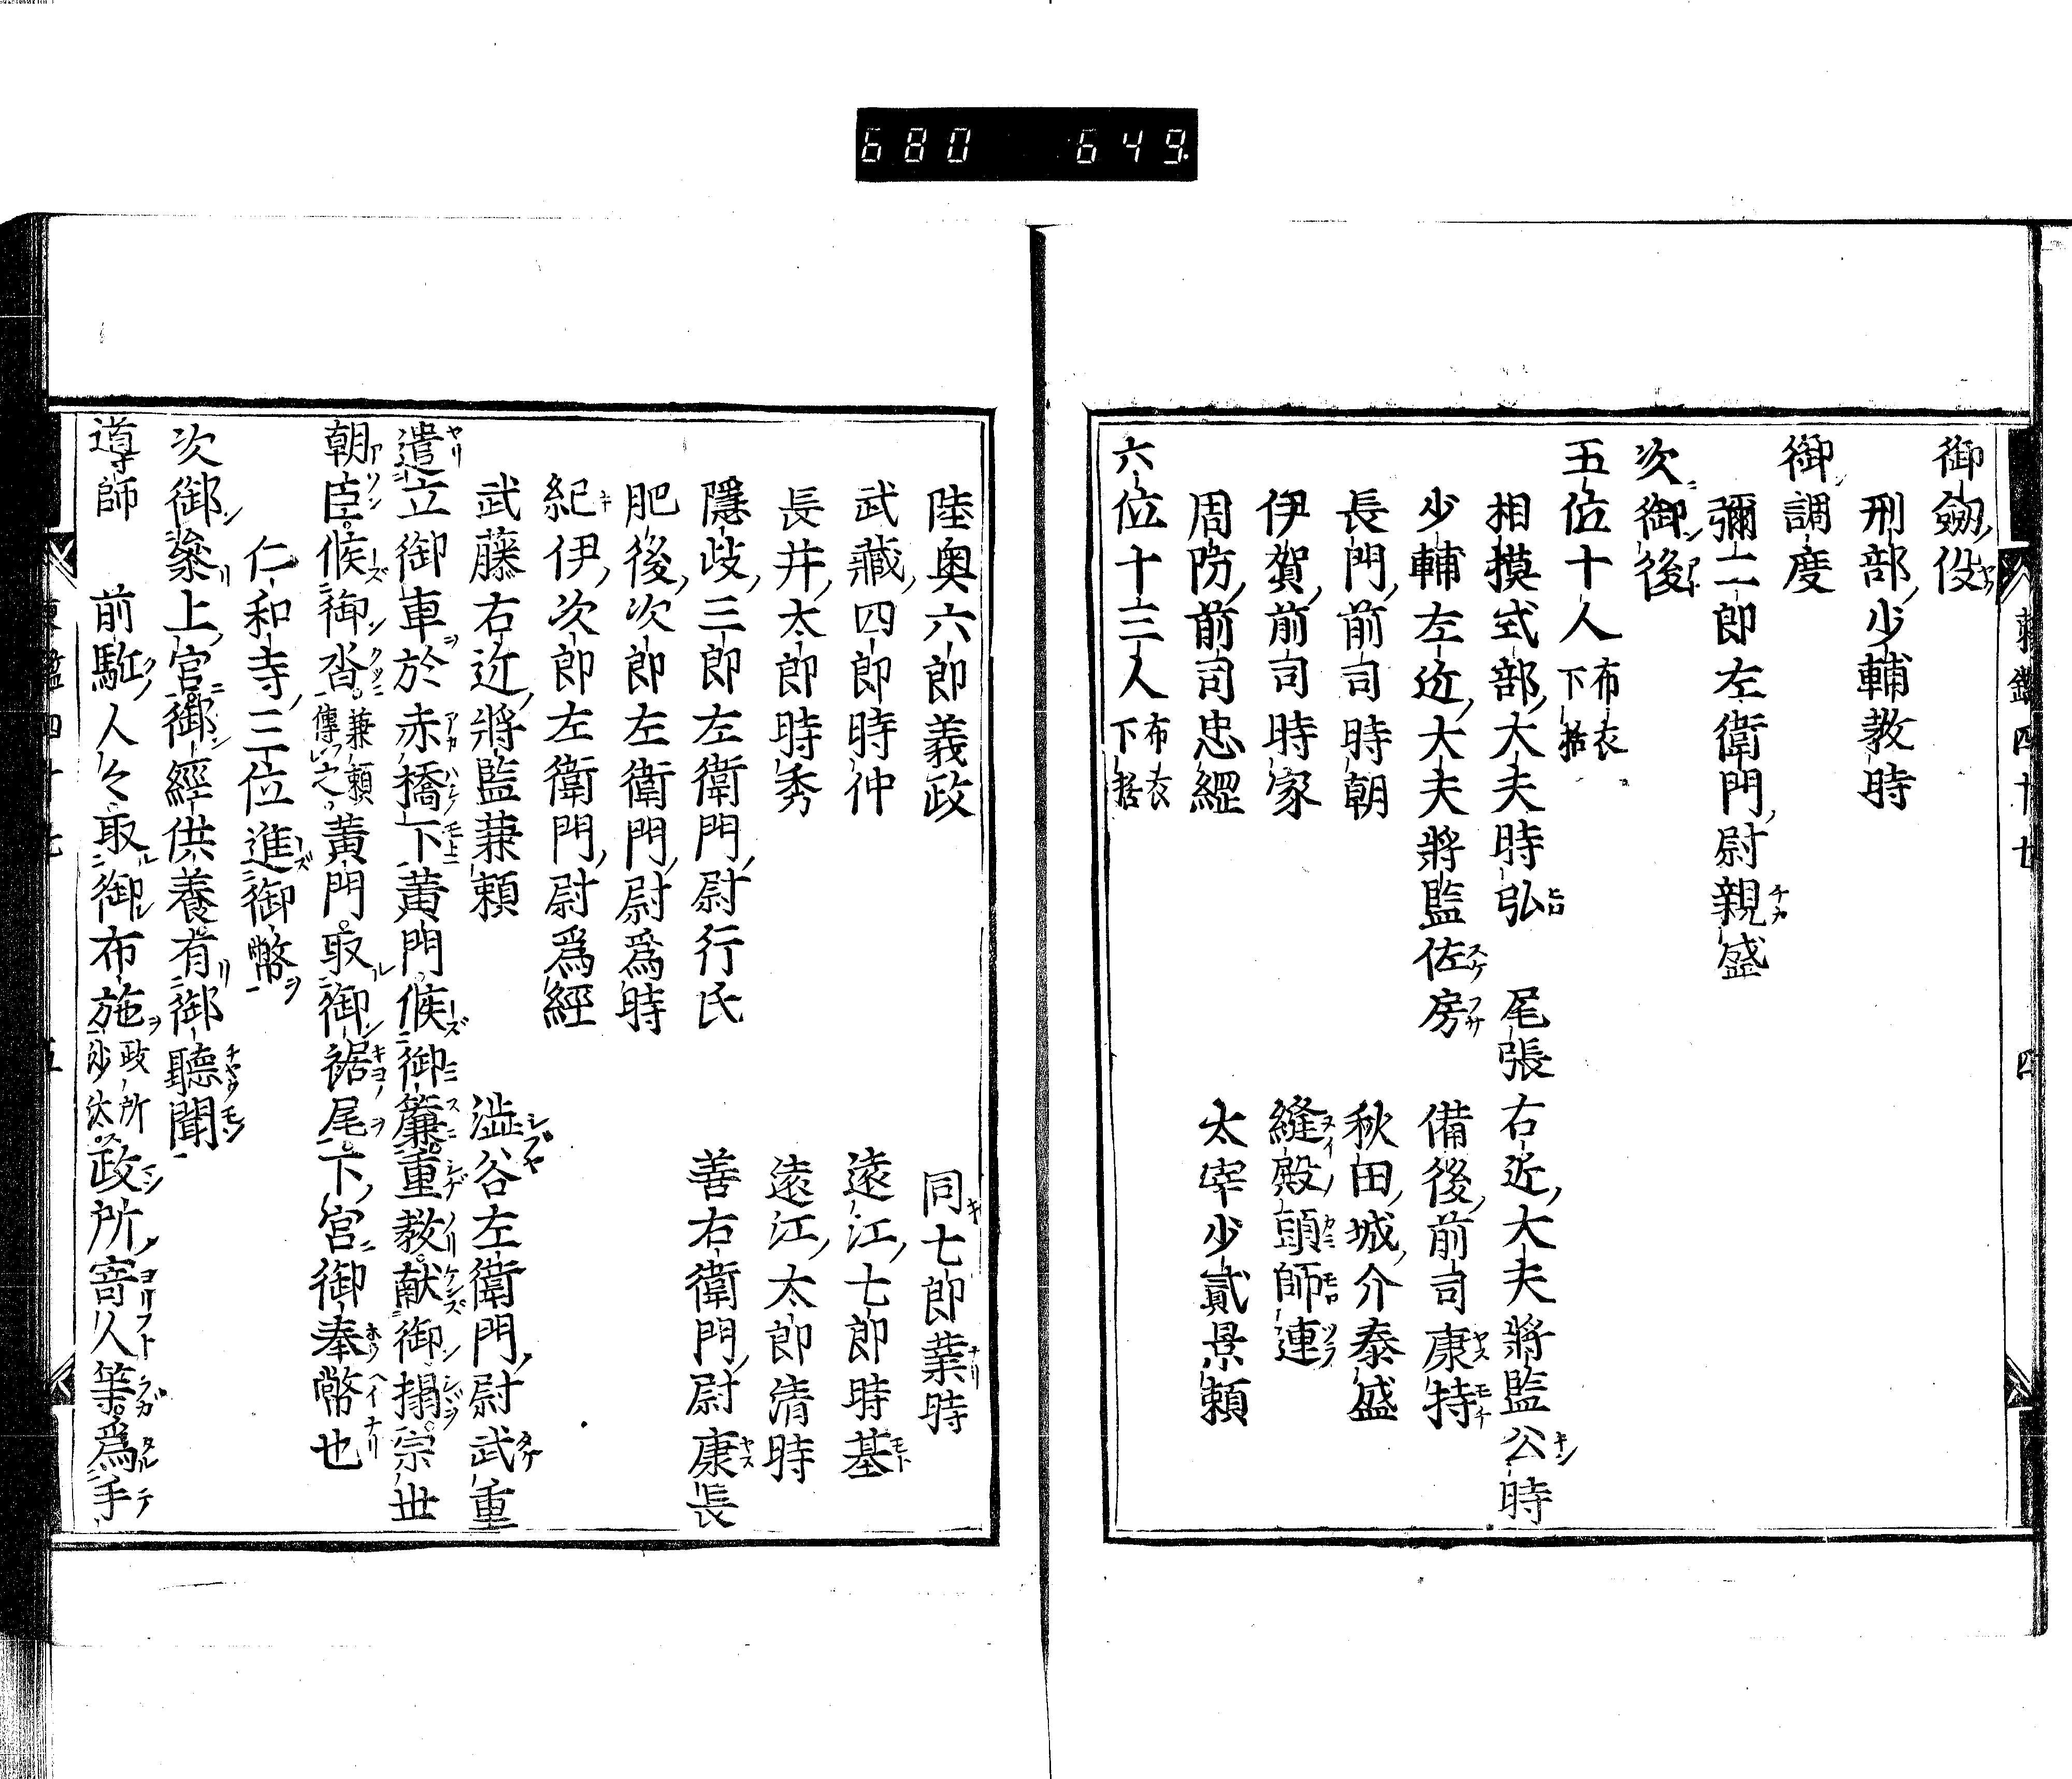 680 649.
御劔役
刑部少輔教時
御調度
彌二郎左衛門尉親盛
次御後
五位十人 布衣下括
相摸式部大夫時弘 尾張右近大夫將監公時
少輔左近大夫將監佐房 備後前司康持
長門前司時朝 秋田城介泰盛
伊賀前司時家 縫殿頭師連
周防前司忠經 太宰少貳景頼
六位十三人 布衣下括
陸奥六郎義政 同七郎業時
武藏四郎時仲 遠江七郎時基
長井太郎時秀 遠江太郎清時
隱岐三郎左衛門尉行氏 善右衛門尉康長
肥後次郎左衛門尉爲時
紀伊次郎左衛門尉爲經
武藤右近將監兼頼 澁谷左衛門尉武重
遣立御車於赤橋下黄門候御簾重教献御搨宗世
朝臣候御沓 兼頼傳之 黄門取御裾尾下宮御奉幣也
仁和寺三位進御幣
次御參上宮御經供養有御聽聞
導師 前駈人々取御布施 政所沙汰 政所寄人等爲手